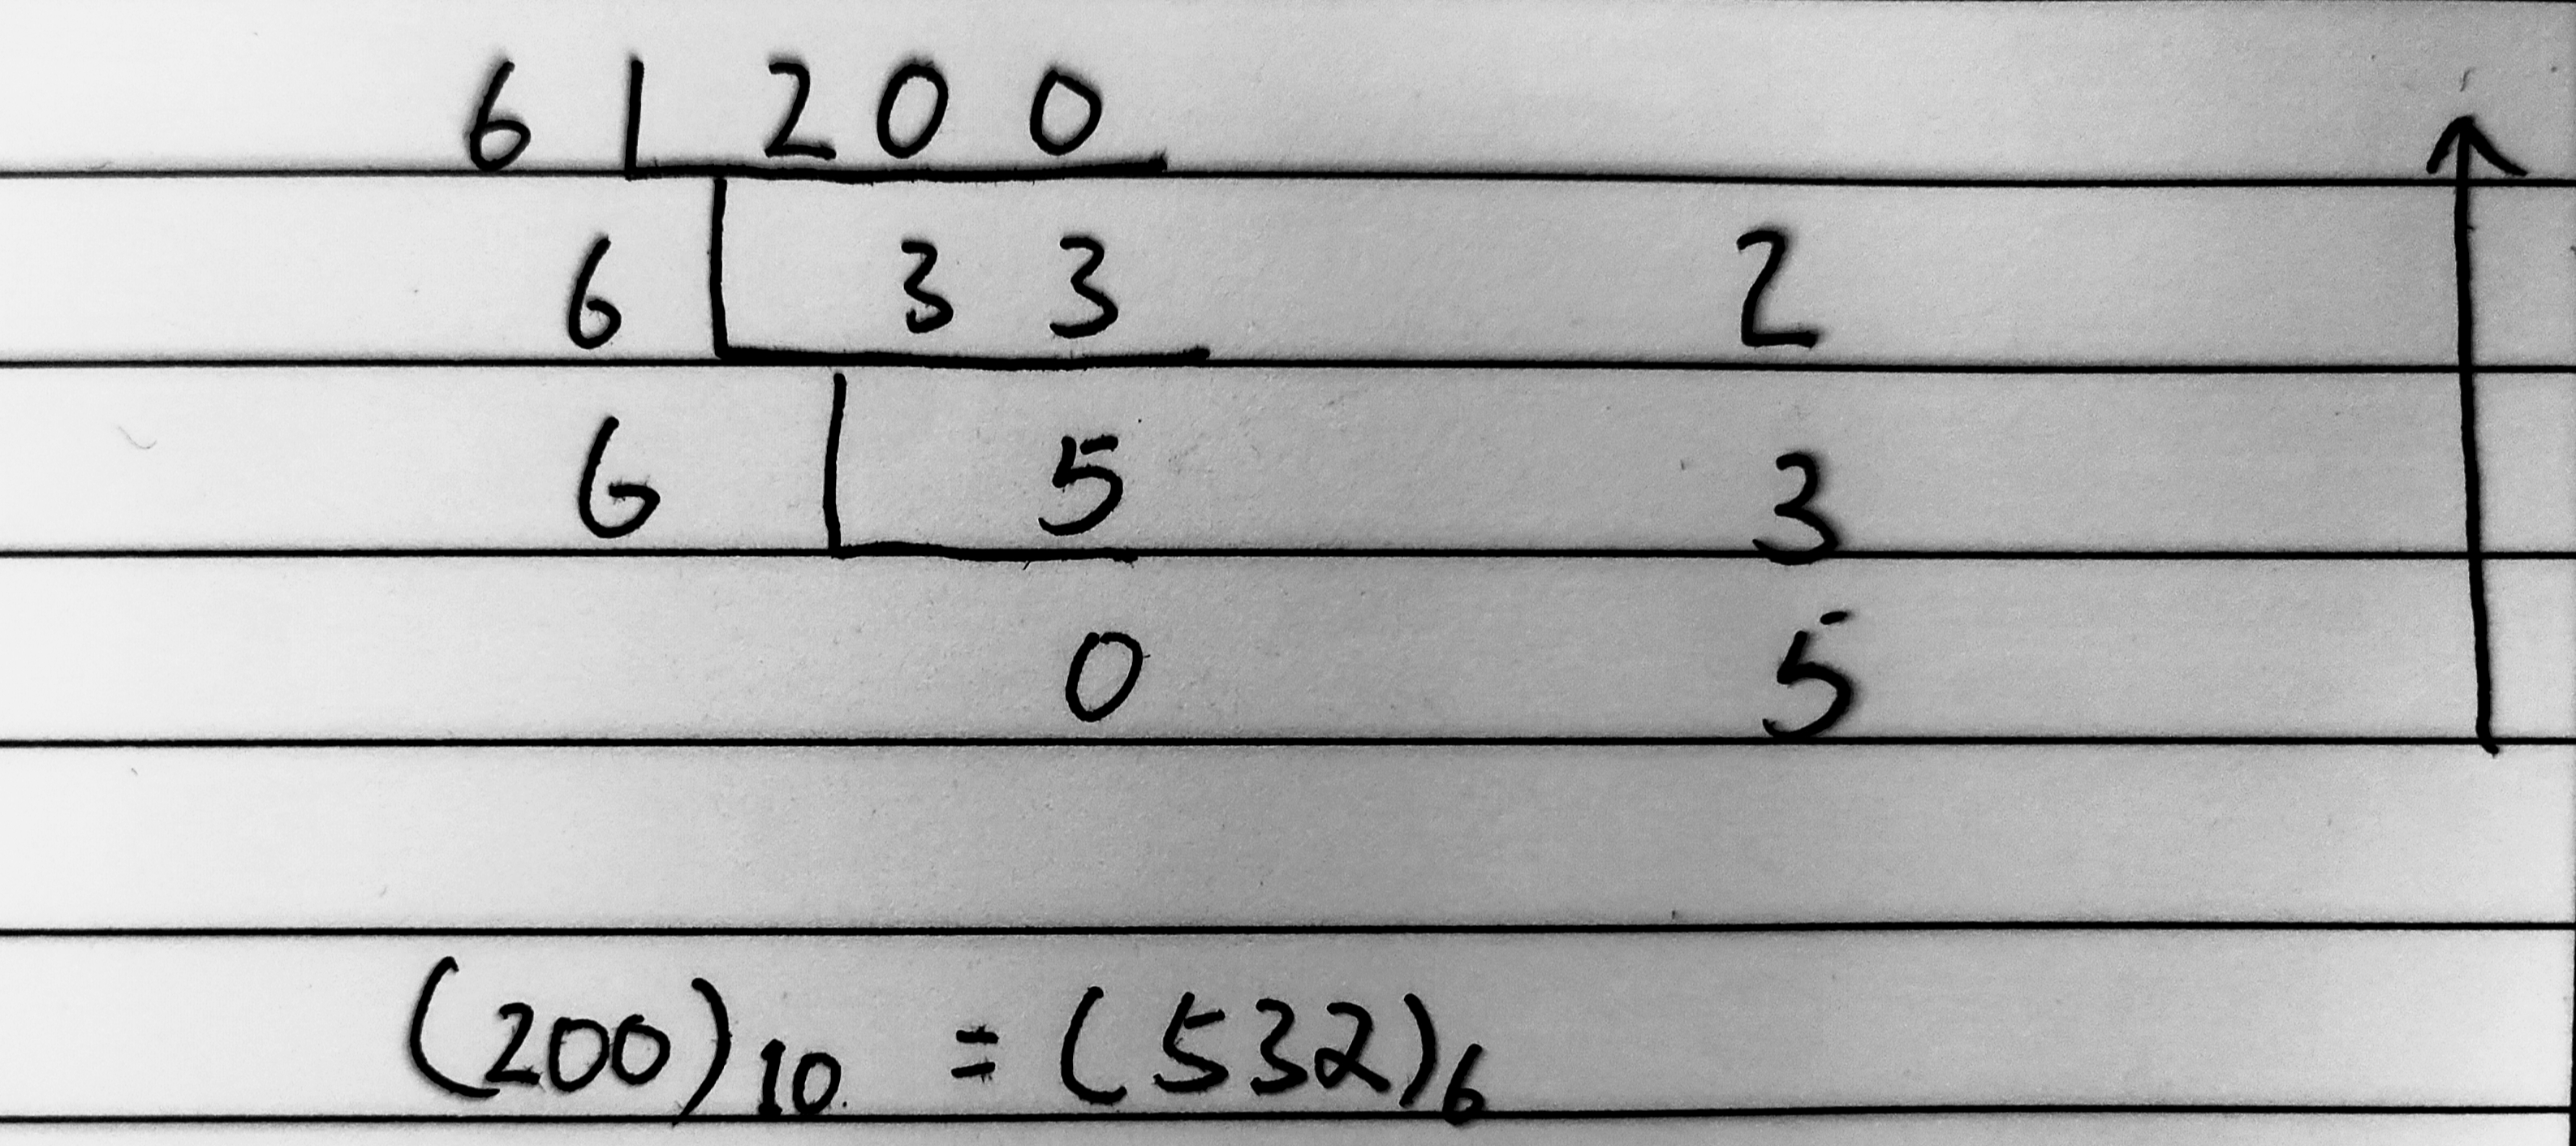 6 | 200
6 | 33 2
6 | 5 3
0 5
(200)10 = (532)6